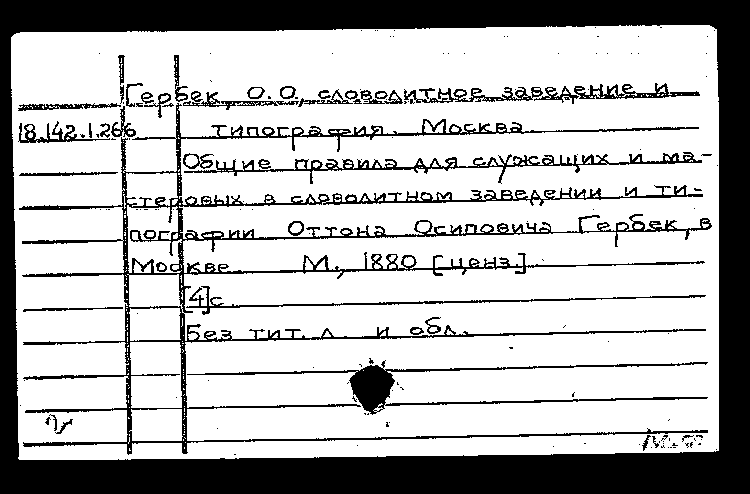 Гербек, О.О., словолитное заведение и
18.142.1.266 типография. Москва.
Общие правила для служащих и ма-
стеровых в словолитном заведении и ти-
пографии Оттона Осиповича Гербек, в
Москве. М., 1880 [ценз.]
[4]с.
Без тит. л. и обл.